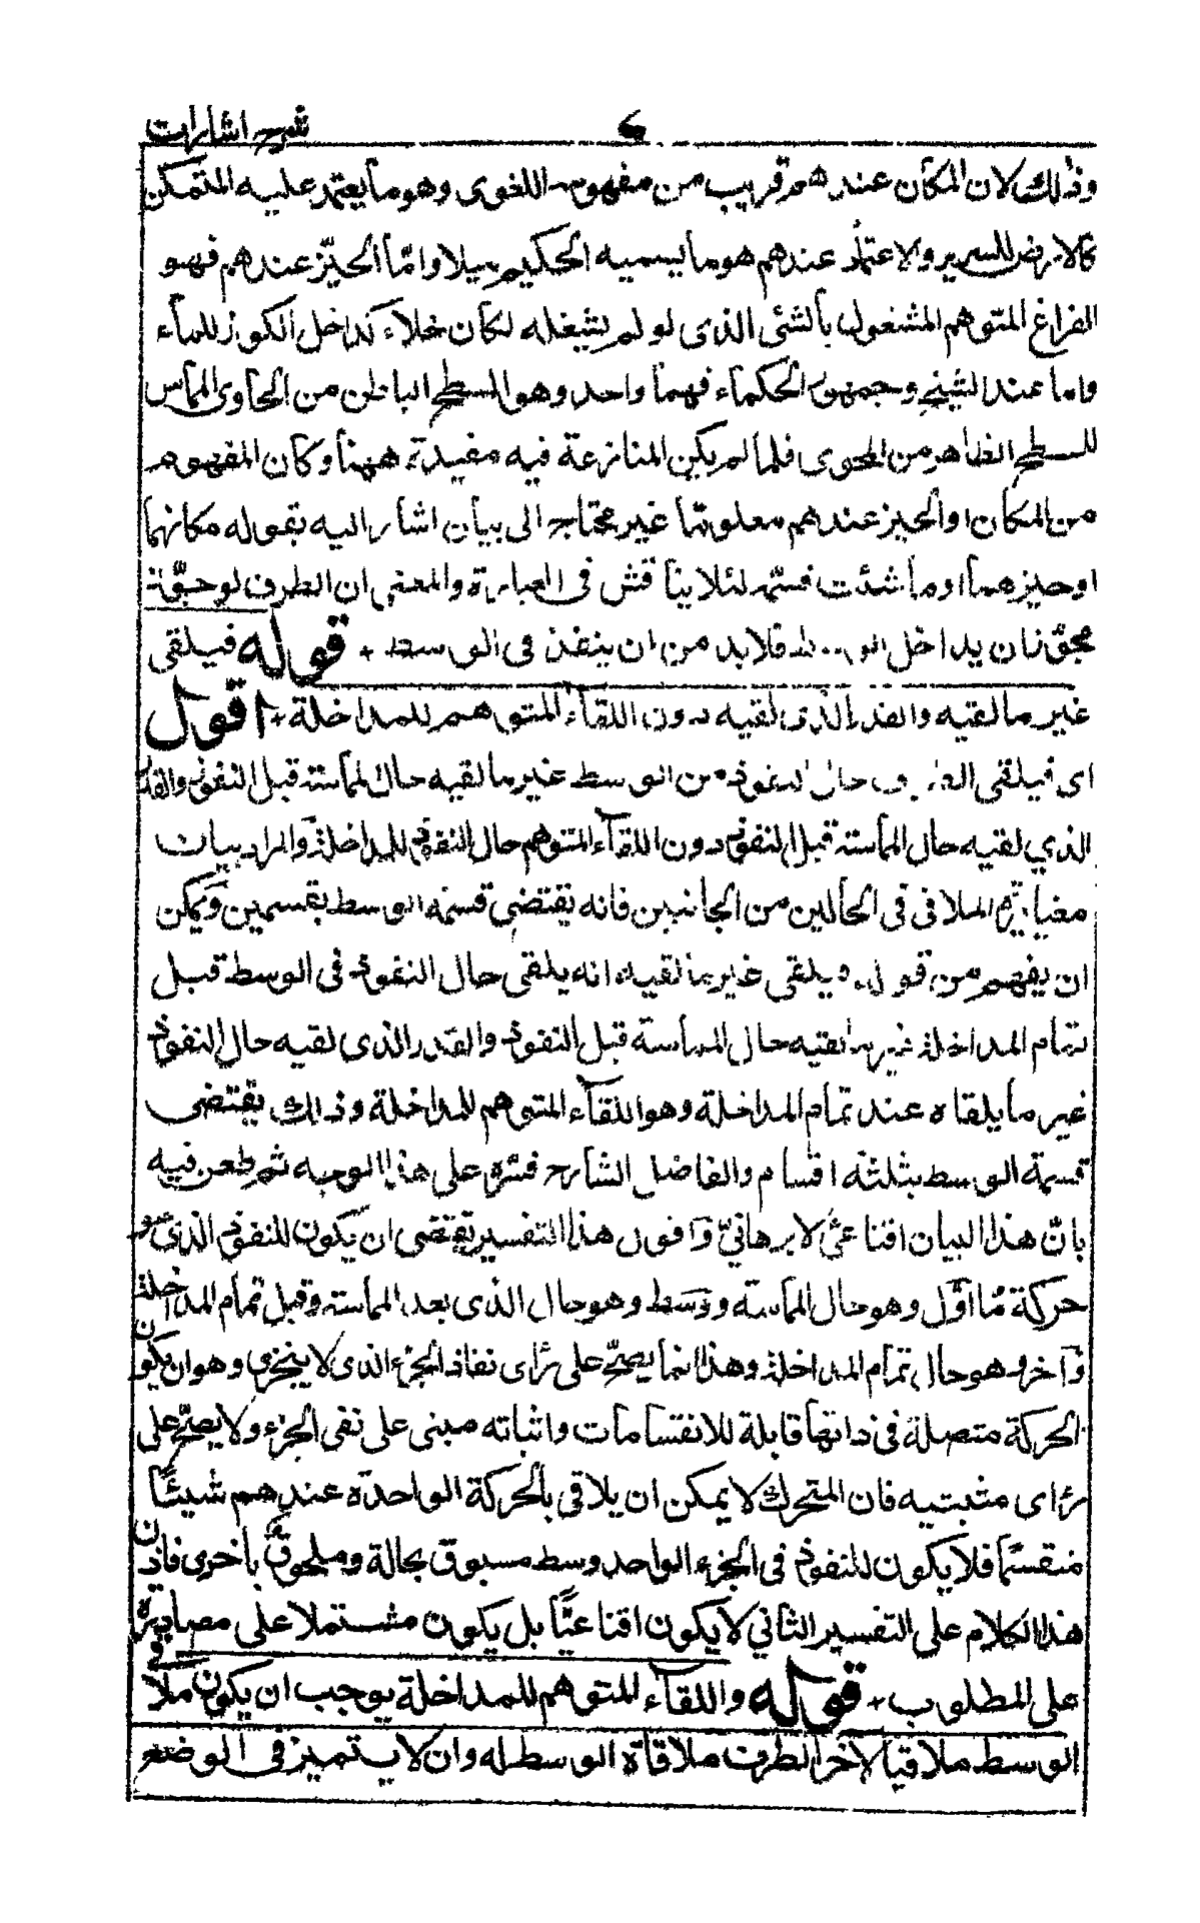 شرح اشارات
٦
وذلك لان المكان عندهم قريب من مفهومه اللغوى وهو ما يعتمد عليه المتمكن
كالارض للسرير والاعتماد عندهم هو ما يسميه الحكيم ميلا وامّا الحيّز عندهم فهو
الفراغ المتوهم المشغول بالشئ الذى لو لم يشغله لكان خلاء كداخل الكوز للماء
واما عند الشيخ وجمهور الحكماء فهما واحد وهو السطح الباطن من الحاوى المماس
للسطح الظاهر من المحوى فلما لم يكن المنازعة فيه مفيدة ههنا وكان المفهوم
من المكان او الحيز عندهم معلوما غير محتاج الى بيان اشار اليه بقوله مكانهما
او حيزهما او ما شئت فسمّه لئلا يناقش فى العبارة والمعنى ان الطرف لو جوّز
مجوّزان يداخل الوسط فلابد من ان ينفذ فى الوسط + قوله فيلقى
غير ما لقيه والقدر الذى لقيه دون اللقاء المتوهم للمداخلة + اقول
اى فيلقى الطرف حال النفوذ من الوسط غير ما لقيه حال المماسة قبل النفوذ والقدر
الذي لقيه حال المماسة قبل النفوذ دون اللقاء المتوهم حال النفوذ للمداخلة والمراد بيان
مغايرة الملاقى فى الحالين من الجانبين فانه يقتضى قسمة الوسط بقسمين ويمكن
ان يفهم من قوله فيلقى غير ما لقيه انه يلقى حال النفوذ فى الوسط قبل
تمام المداخلة غير ما لقيه حال المماسة قبل النفوذ والقدر الذى لقيه حال النفوذ
غير ما يلقاه عند تمام المداخلة وهو اللقاء المتوهم للمداخلة وذلك يقتضى
قسمة الوسط بثلثة اقسام والفاضل الشارح فسّره على هذا الوجه ثم طعن فيه
بانّ هذا البيان اقناعىّ لا برهانىّ واقول هذا التفسير يقتضى ان يكون للنفوذ الذى هو
حركة مّا اوّل وهو حال المماسة ووسط وهو حال الذى بعد المماسة وقبل تمام المداخلة
وآخر وهو حال تمام المداخلة وهذا انما يصحّ على رأى نفاة الجزء الذى لا يتجزى وهو ان يكون
الحركة متصلة فى ذاتها قابلة للانقسامات واثباته مبنى على نفى الجزء ولا يصحّ على
رأى مثبتيه فان المتحرك لا يمكن ان يلاقى بالحركة الواحدة عندهم شيئًا
منقسمًا فلا يكون للنفوذ فى الجزء الواحد وسط مسبوق بحالة وملحوق باخرى فاذن
هذا الكلام على التفسير الثاني لا يكون اقناعيًّا بل يكون مشتملا على مصادرة
على المطلوب + قوله واللقاء المتوهم للمداخلة يوجب ان يكون ملاقى
الوسط ملاقيا لاخر الطرف ملاقاة الوسط له وان لا يتميز فى الوضع